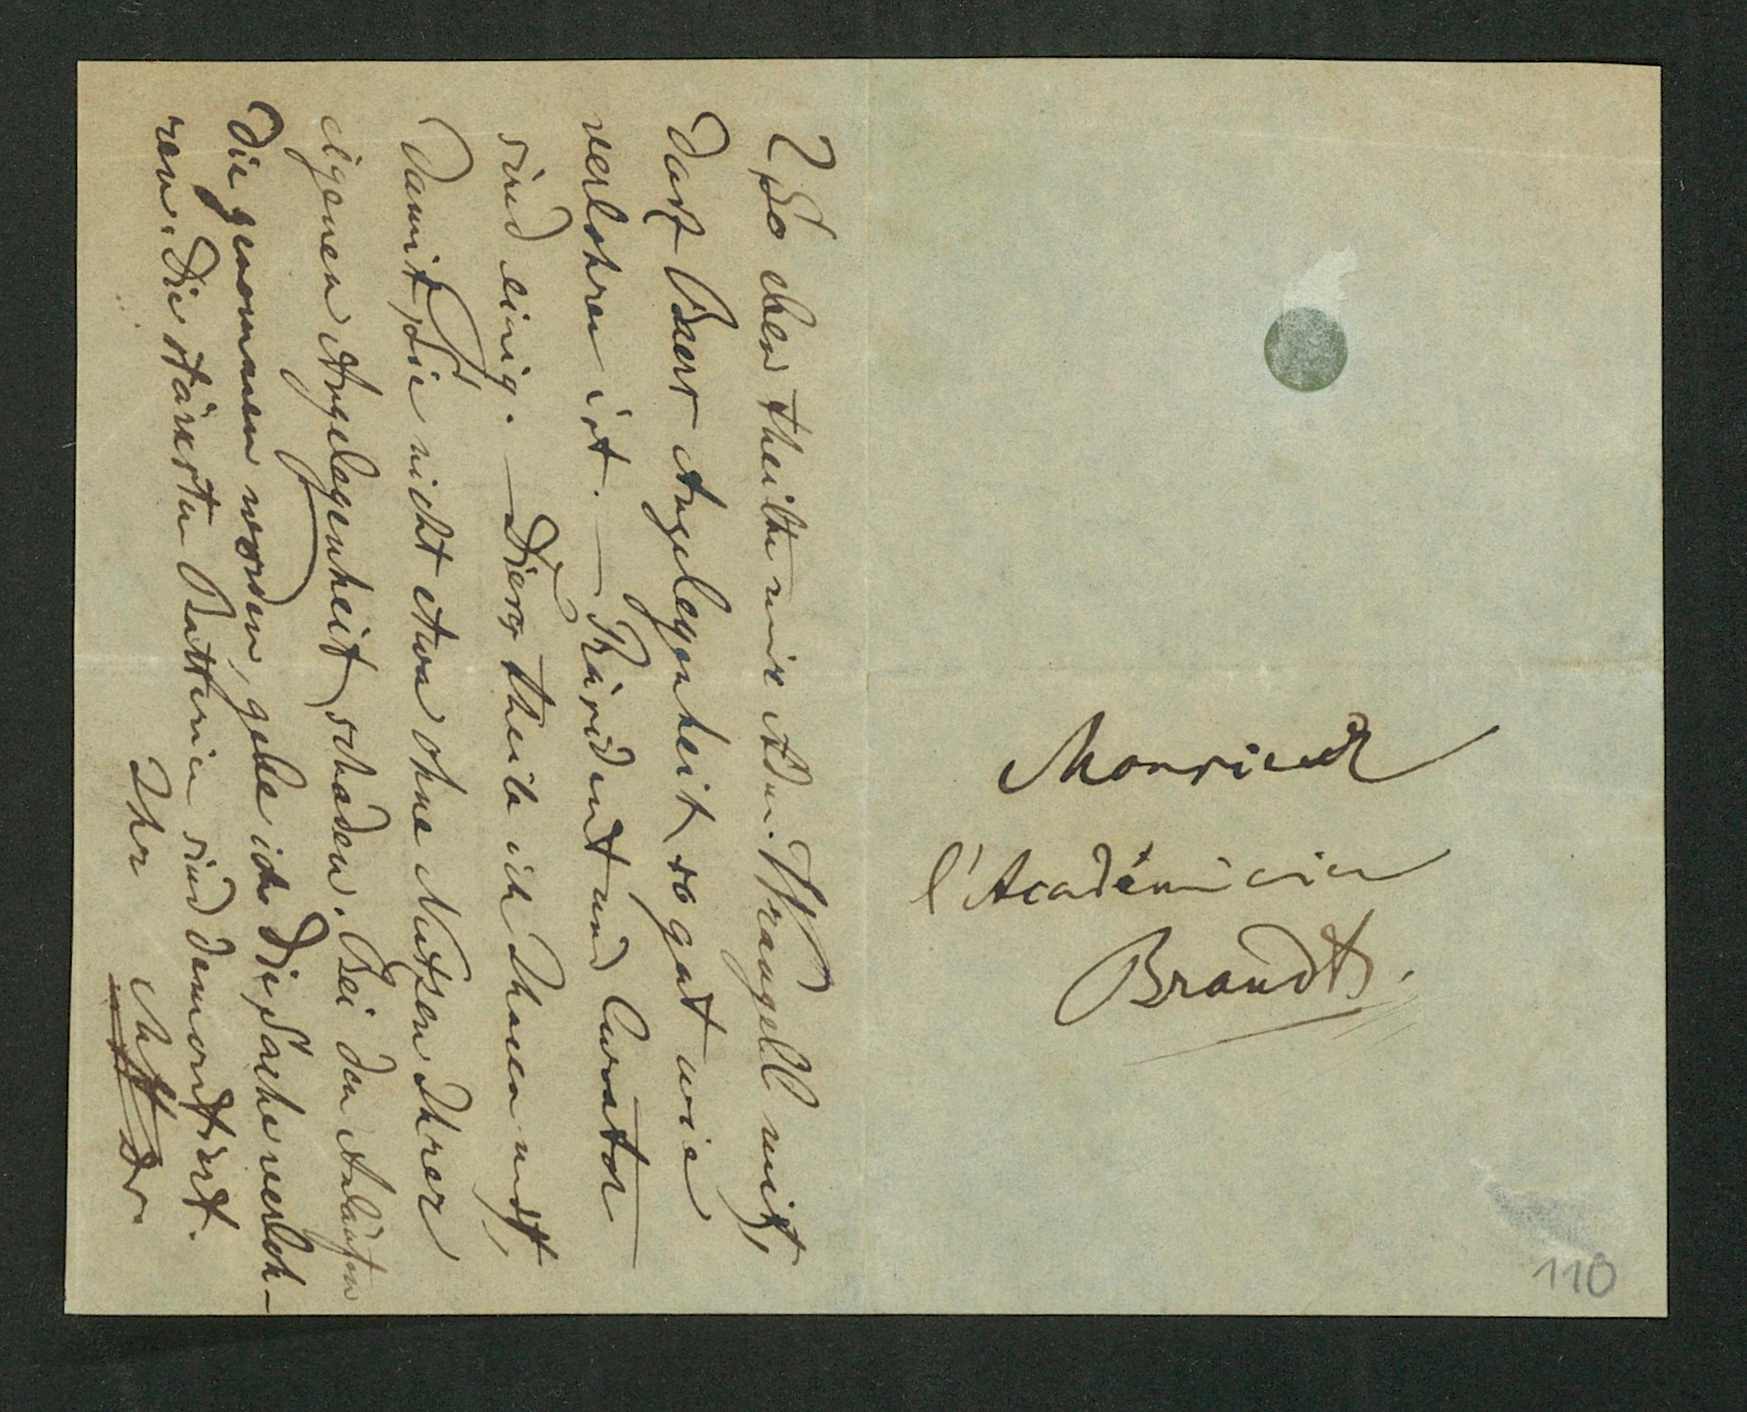 So eben theilte mir Adm. Wrangell mit,
dass Baers Angelegenheit so gut wie
verlohren ist. — Präsident und Curator
sind einig. — Dieses theile ich Ihnen mit,
damit Sie nicht etwa ohne Nutzen Ihrer
eigenen Angelegenheit schaden. Bei den Anläufen
die genommen worden, gebe ich die Sache verloh-
ren. Die stärksten Batterien sind demontirt.
Ihr
Monsieur
l'Académicien
Brandt.
110